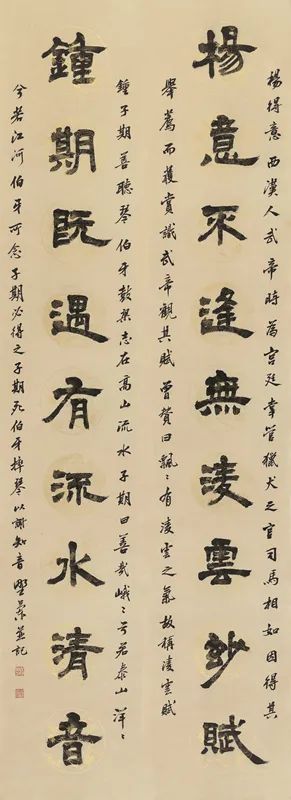 楊得意西漢人武帝時為宮廷掌管獵犬之官司馬相如因得其
楊意不逢無淩雲妙賦
舉薦而獲賞識武帝觀其賦曾贊曰飄〻有淩雲之氣故稱淩雲賦
鍾子期善聽琴伯牙鼓琴志在高山流水子期曰善哉峨〻兮若泰山洋〻
鍾期既遇有流水清音
兮若江河伯牙可念子期必得之子期死伯牙摔琴以謝知音 並記